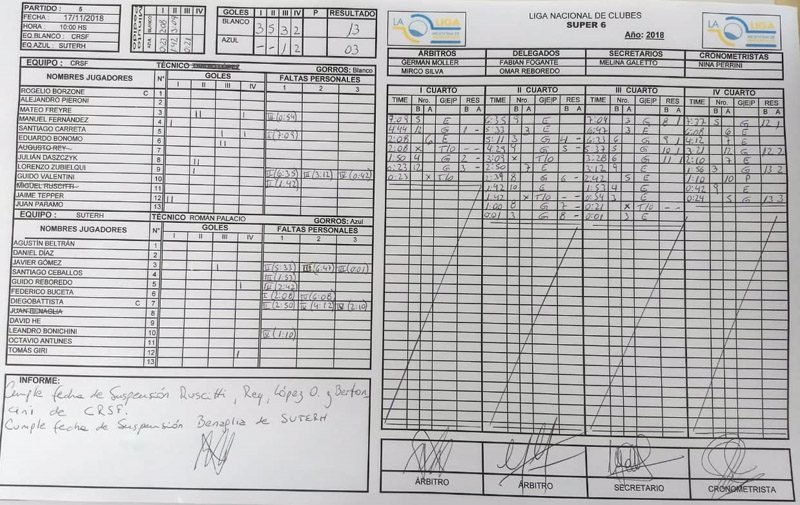 PARTIDO : 5
FECHA : 17/11/2018
HORA : 10:00 HS
EQ.BLANCO : CRSF
EQ.AZUL : SUTERH
I II III IV
BLANCO
AZUL
GOLES I II III IV P RESULTADO
BLANCO 3 5 3 2 13
AZUL - - 1 2 03
EQUIPO : CRSF TÉCNICO GORROS: Blanco
NOMBRES JUGADORES N° GOLES FALTAS PERSONALES
I II III IV 1 2 3
ROGELIO BORZONE C 1
ALEJANDRO PIERONI 2
MATEO FREYRE 3
MANUEL FERNANDEZ 4
SANTIAGO CARRETA 5 II (7:09)
EDUARDO BONOMO 6
AUGUSTO REY 7
JULIÁN DASZCZYK 8
LORENZO ZUBIELQUI 9
GUIDO VALENTINI 10 II (6:35) III (3:12) IV (0:42)
MIGUEL RUSCITTI 11 II (1:42)
JAIME TEPPER 12
JUAN PARAMO 13
EQUIPO : SUTERH TÉCNICO ROMÁN PALACIO GORROS: Azul
NOMBRES JUGADORES N° GOLES FALTAS PERSONALES
I II III IV 1 2 3
AGUSTÍN BELTRÁN 1
DANIEL DÍAZ 2
JAVIER GÓMEZ 3 II (5:33) III (6:47) III (0:01)
SANTIAGO CEBALLOS 4 III (1:53)
GUIDO REBOREDO 5 III (2:42)
FEDERICO BUCETA 6 I (2:08) IV (6:08)
DIEGOBATTISTA C 7 II (2:50) IV (4:12) IV (2:10)
JUAN BENAGLIA 8
DAVID HE 9
LEANDRO BONICHINI 10 IV (1:10)
OCTAVIO ANTUNES 11
TOMÁS GIRI 12
13
INFORME:
Cumple fecha de Suspensión Ruscitti, Rey, López O. y Berton
ani de CRSF.
Cumple fecha de Suspensión Benaglia de SUTERH
LA LIGA
LIGA NACIONAL DE CLUBES
SUPER 6
Año: 2018
LA LIGA
ÁRBITROS DELEGADOS SECRETARIOS CRONOMETRISTAS
GERMÁN MOLLER FABIÁN FOGANTE MELINA GALETTO NINA PERRINI
MIRCO SILVA OMAR REBOREDO
I CUARTO II CUARTO III CUARTO IV CUARTO
TIME Nro. G|E|P RES TIME Nro. G|E|P RES TIME Nro. G|E|P RES TIME Nro. G|E|P RES
B A B A B A B A B A B A B A B A
5:33 3 E 6:47 3 E 6:08 6 E
2:08 6 E 5:11 3 G 4 - 6:23 6 G 9 1 4:12 7 E
2:08 x T/O - - 4:29 9 G 5 - 5:37 5 G 10 1 3:21 12 G 12 2
1:50 4 G 2 - 3:09 x T/O 3:28 6 G 11 1 2:10 7 E
0:23 12 G 3 - 2:50 7 E 3:12 9 E 1:56 3 G 13 2
0:23 x T/O 2:39 8 G 6 - 2:42 5 E 1:10 10 P
1:42 10 E 1:53 4 E 0:42 9 E
1:42 x T/O - - 0:54 3 E 0:24 5 G 13 3
1:00 8 G 7 - 0:21 x T/O - -
0:01 3 G 8 - 0:01 3 E
ÁRBITRO ÁRBITRO SECRETARIO CRONOMETRISTA